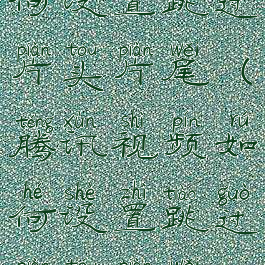 何设置跳过
piàn tóu piàn wěi
片头片尾（
téng xùn shì pín rú
腾讯视频如
hé shè zhì tiào guò
何设置跳过